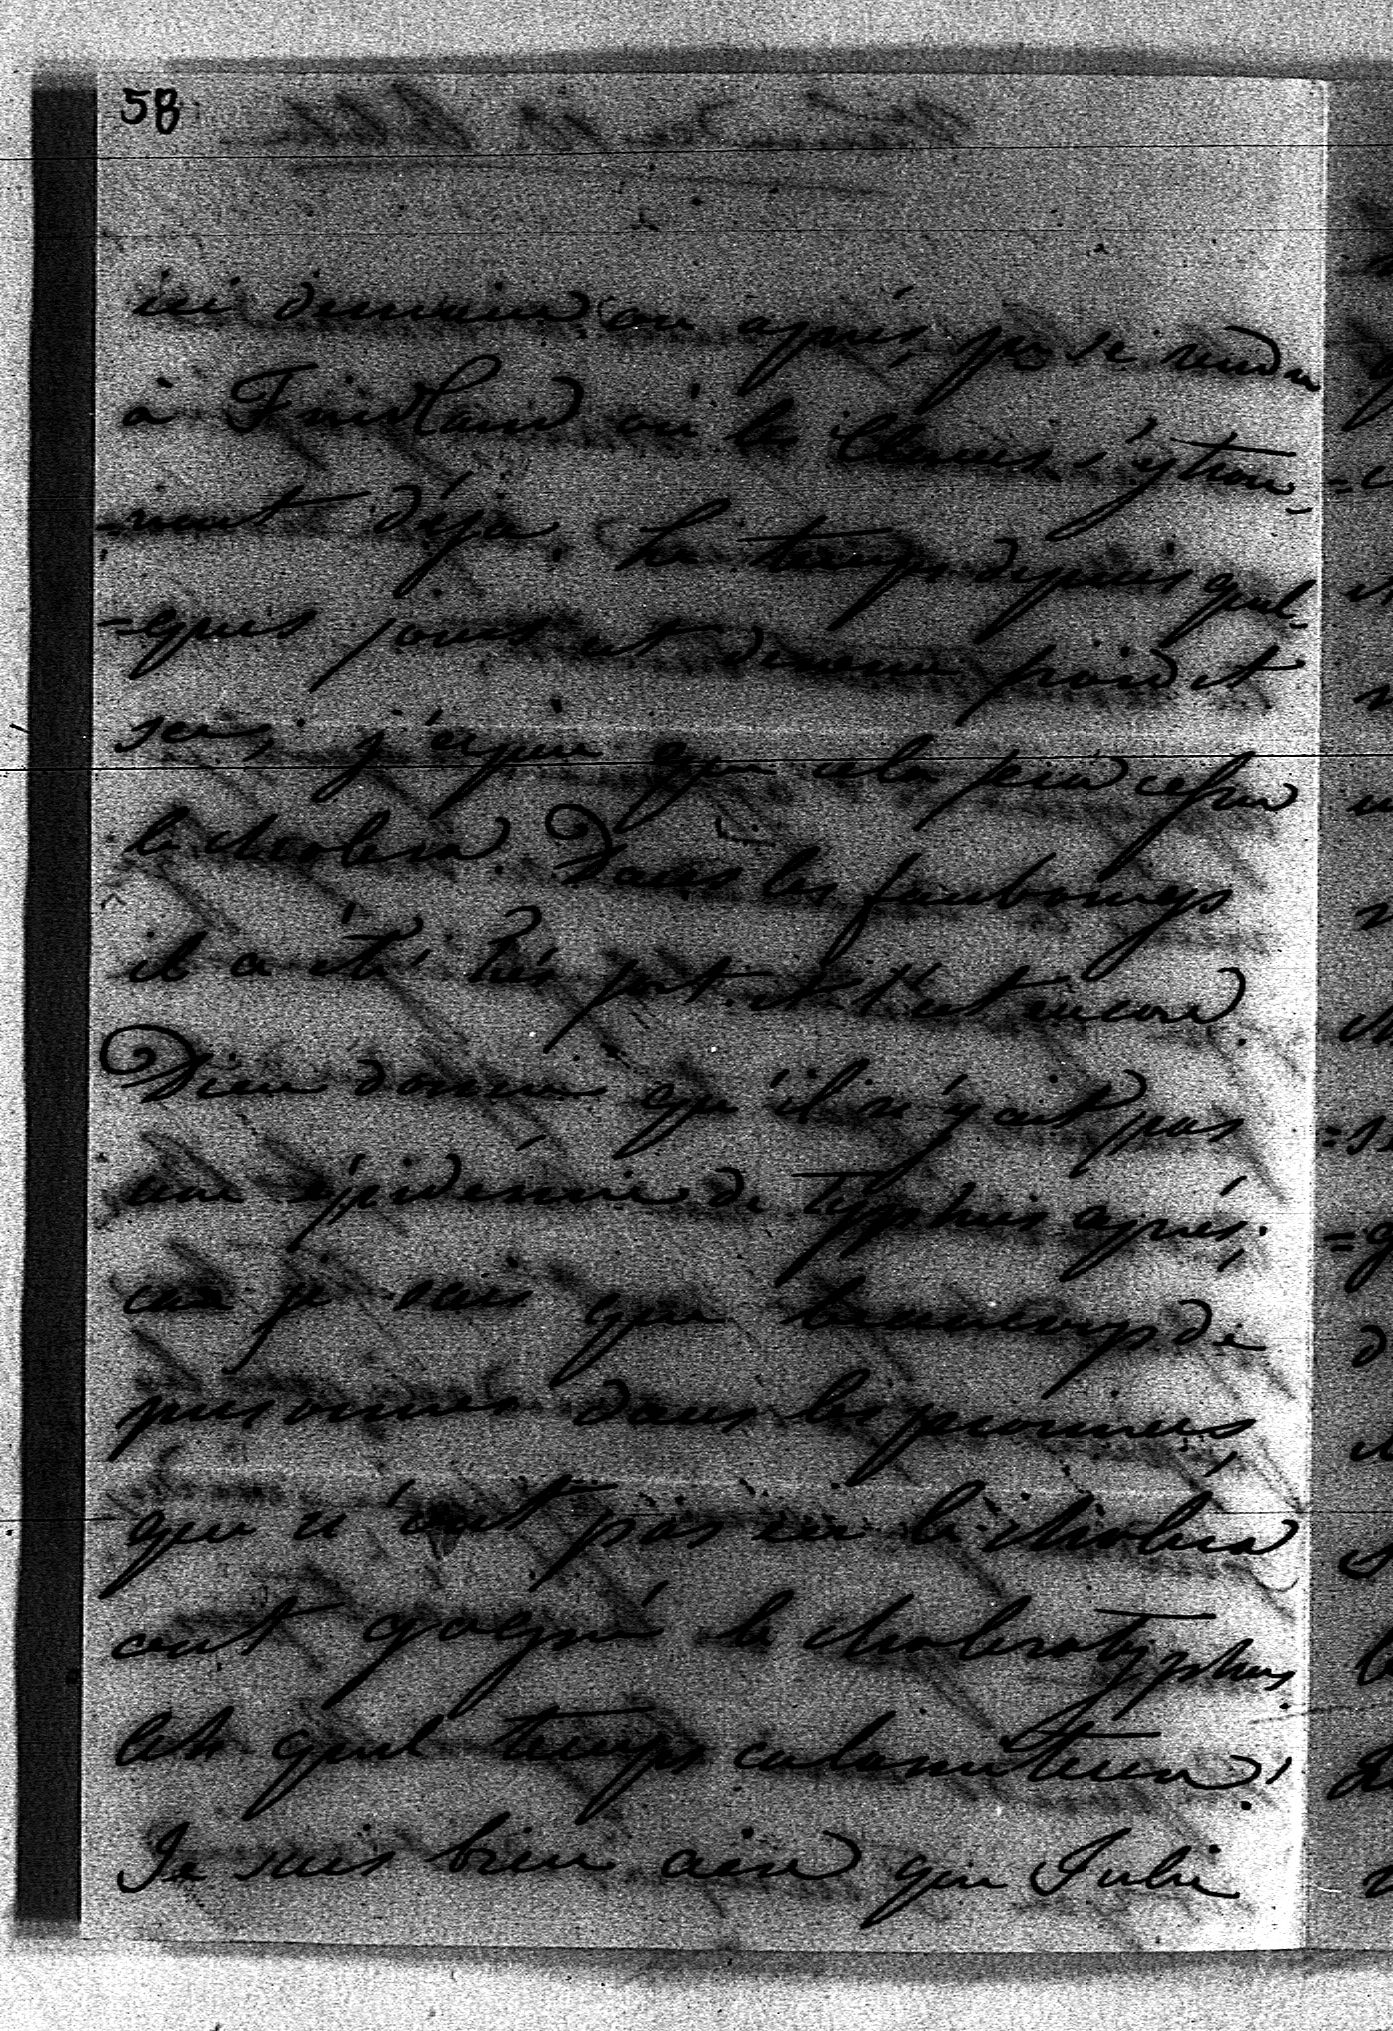 58
ici demain ou après, pr se rendre
à Fridland où les s'y trou-
=vent déjà. Le temps depuis quel-
=ques jours est devenu froid et
sec, j'espère que cela fera cesser
le cholera. Dans les faubourgs
il a été très fort et l'est encore.
Dieu donne qu'il n'y ait pas
une épidémie de typhus après,
car je sais que beaucoup de
personnes dans les
que n'ont pas eu le cholera
ont gagné le cholerotyphus.
Ach quel temps calamiteux!
Je suis bien aise que Julie